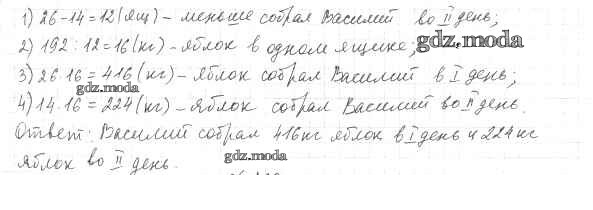 1) 26-14=12(ящ) - меньше собрал Василий во II день;
2) 192:12=16(кг) - яблок в одном ящике;
gdz.moda
3) 26·16=416(кг) - яблок собрал Василий в I день;
gdz.moda
4) 14·16=224(кг) - яблок собрал Василий во II день.
Ответ: Василий собрал 416кг яблок в I день и 224кг
яблок во II день.
gdz.moda